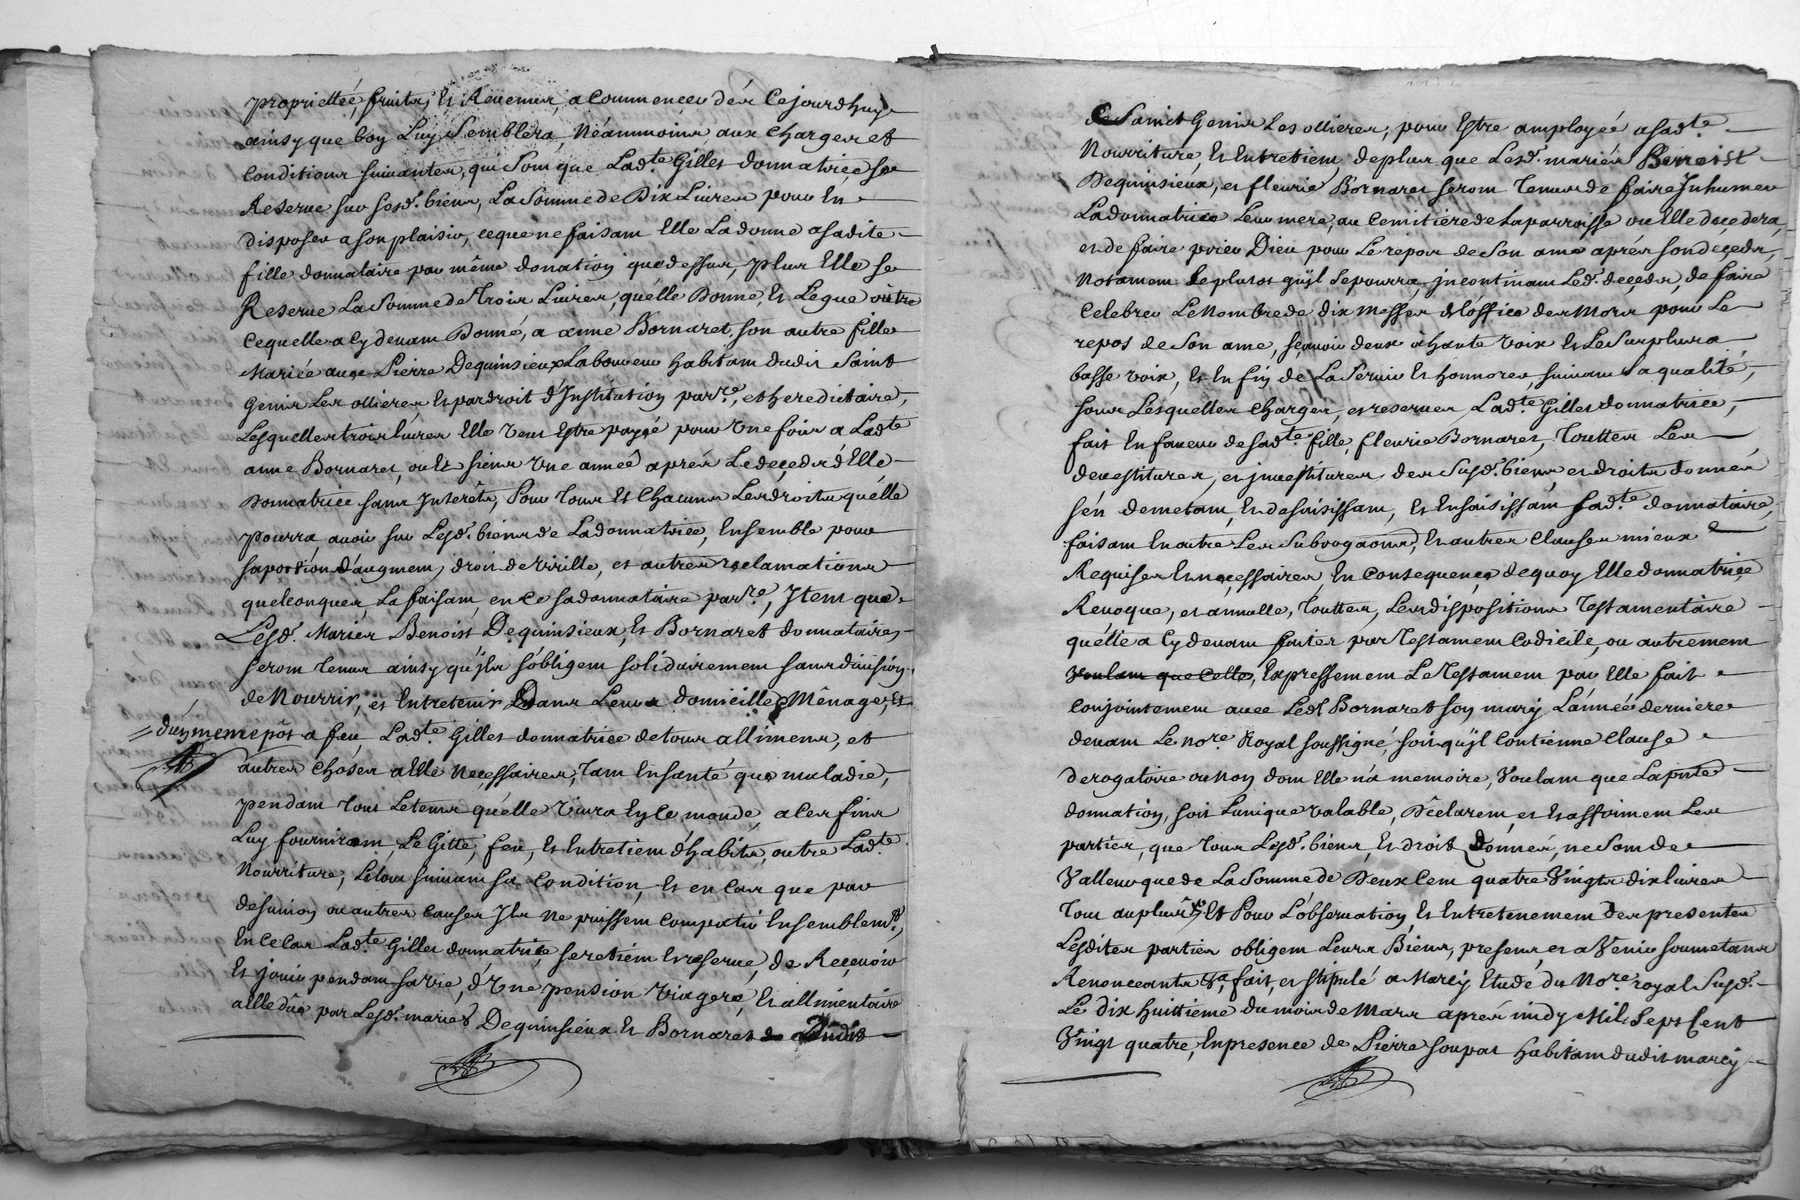 proprietteé, fruits, Et Revenus, a Commencer dés Cejourdhuy
ainsy que bon Luy Semblera, Néanmoins aux charges et
Conditions suivantes, qui Sont que Ladte Gilles donnatrice se
Reserve sur sesd. biens, La Somme de Dix Livres pour En
disposer a son plaisir, ceque ne faisant Elle La donne a sadite
fille donnataire par même donation que dessus, plus Elle se
Reserve La Somme de Trois Livres, quélle Donne, Et Legue oûtre
Cequelle a Cy devant Donné, a anne Bornaret, son autre fille
Mariée avec Pierre Dequinsieux Laboureur habitant dudit Saint
Genis Les ollieres Et par droit d'Institution parre, et hereditaire,
Lesquelles trois Livres Elle Veut Estre payéé pour Une fois a Ladte
anne Bornaret, ou Et siens Une anneé aprés Le deçeds d'Elle
Donnatrice sans Interêts, Pour Tous Et Chacuns Les droits quélle
pourra avoir sur Lesd. biens de La donnatrice, Ensemble pour
sa portion d'augment, droit de Virille, et autres reclamations
quelconques La faisant, en ce sa donnataire parre, Item que
Lesd. Mariés Benoist Dequinsieux, Et Bornaret donnataires
seront tenus ainsy qu'jls s'obligent solidairement sans division
de Nourrir, et Entretenir Dans Leurs domicille, Mênage, Et
= dúy meme pôt a feu Ladte Gilles donnatrice de tous alliments, et
autres choses a Elle Neçessaires, Tant En santé que maladie,
pendant Tout Le tems quélle Vivra En Ce monde, a Ces fins
Luy fourniront, Le Gitte, feu, Et Entretient d'habits, outre Ladte
Nourriture, Le tout suivant sa Condition, Et en Cas que par
desunion ou autres Causes Jls ne puissent Compatir Ensemblemt.,
En Ce Cas Ladte Gilles donnatrice se retient Et reserve, de Reçevoir
Et jouir pendant sa vie, d'Une pension Viagere, Et allimentaire
a Elle dûe par Lesd. mariés Dequinsieux Et Bornaret Dudit
de Sainct Genis Les ollieres, pour Estre amployéé a sadte
Nourriture, Et Entretient, de plus que Lesd. mariés Benoist
Dequinsieux, et fleurie Bornaret seront Tenus de faire Inhumer
La donnatrice Leur mere, au Cemitiere de La parroisse ou Elle decedera,
et de faire prier Dieu pour Le repos de Son ame aprés son deçeds,
Notament Le plutot qu'jl Se pourra, jncontinant Led. deçeds, de faire
Celebrer Le Nombre de dix Messes de l'office des Morts pour Le
repos de Son ame, sçavoir deux a haute Voix Et Le Surplus a
basse voix, Et En fin de La Servir Et honnorer, suivant sa qualité,
sous Lesquelles charges, et reserves Ladte Gilles donnatrice,
fait En faveur de sadte fille, fleurie Bornaret, Touttes Les
devestitures, et jnvestitures, des Susd. biens et droits donnés
s'én demetant, En desaisissant, Et En saisissant sadte donnataire,
faisant En outre Les Subrogaons, Et autres Clauses mieux
Requises Et neçessaires, En Consequençe de quoy Elle donnatriçe
Revoque, et annulle, Touttes, Les dispositions Testamentaire
quélle a Cy devant faites par Testament Codicile, ou autrement
Voulant que Celle, Expressement Le Testament par Elle fait
Conjointement avec Led. Bornaret son mary L'anneé derniere
devant Le nore Royal soussigné, soit qu'jl Contienne Clause
derogatoire ou Non dont Elle n'a memoire, Voulant que La pnte
donnation, soit L'unique valable, Dêclarent, et Et affirment Les
parties, que Tous Lesd. biens, Et droits Donnés, ne Sont de
Valleur que de La Somme de Deux Cent quatre Vingts dix livres
Tout au plus Et Pour L'observation, Et Entretenement des presentes
Lesdites parties obligent Leurs Biens, presens, et a Venir soumetans
Renonceants Va fait, et stipulé a Marcy Etude du Nore royal Susd.
Le dix huittieme du mois de Mars aprés midy Mil Sept Cent
Vingt quatre, En presence de Pierre soupat habitant dudit marcy